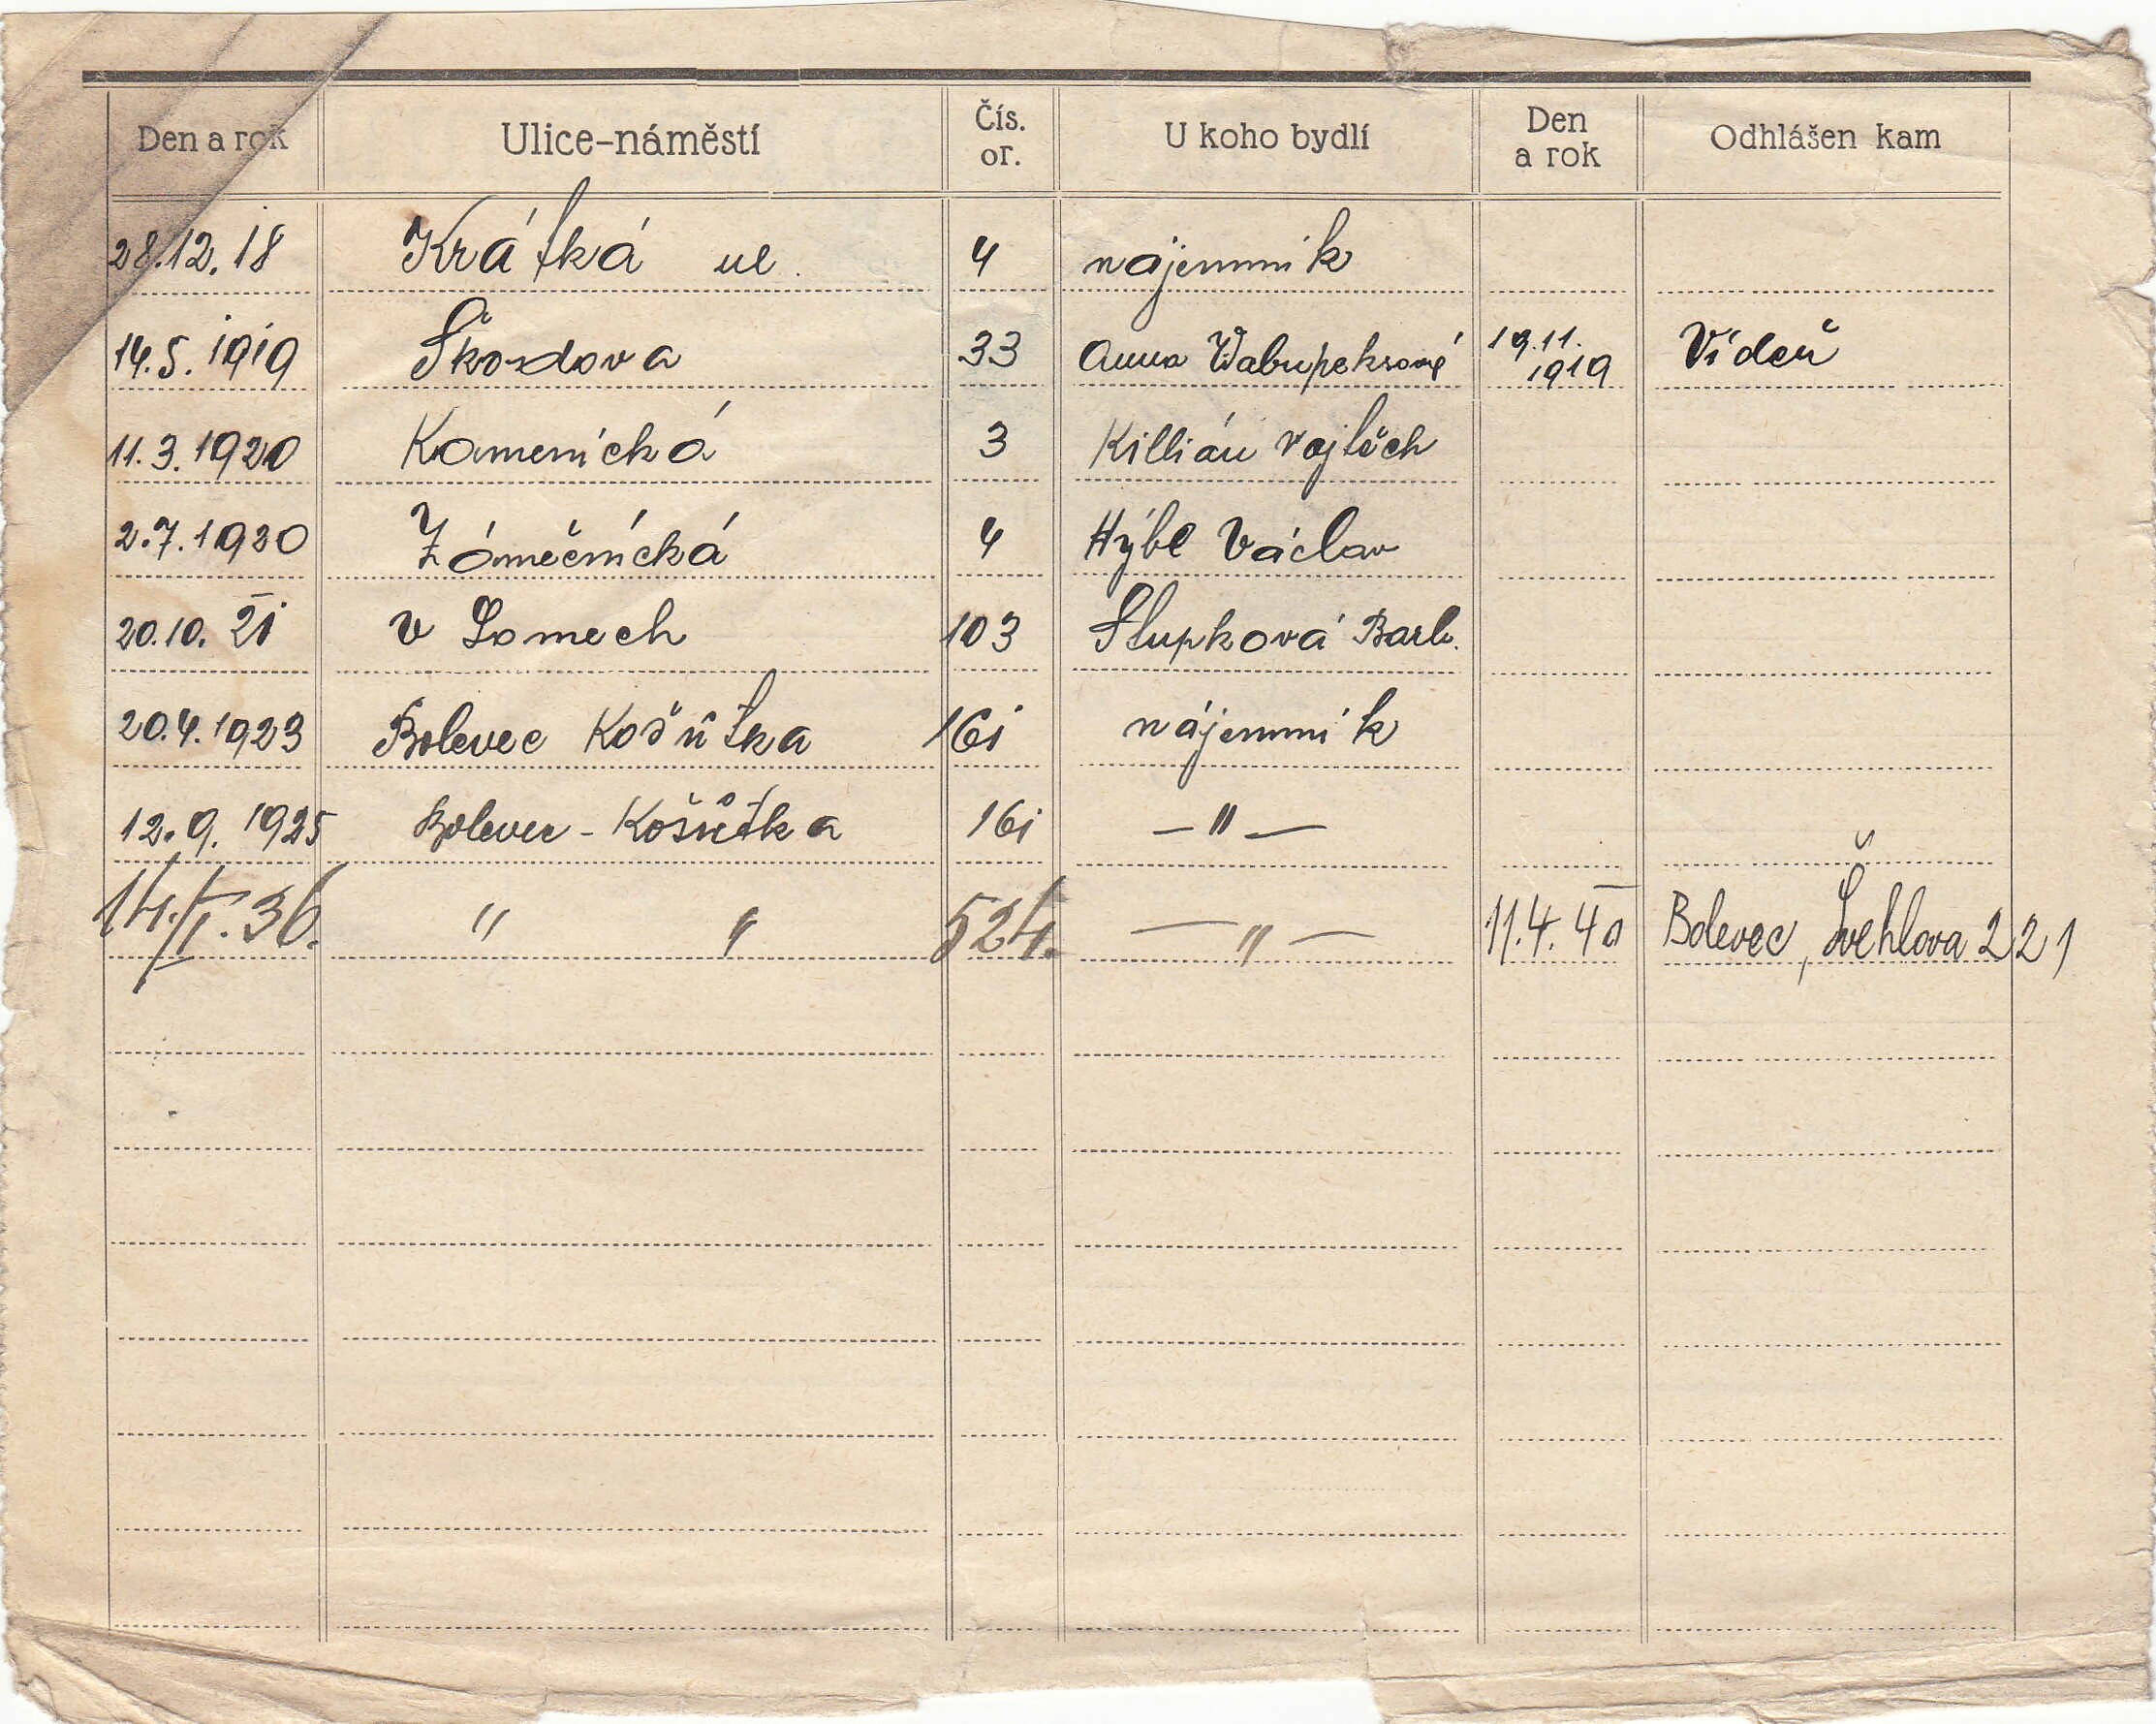 Den a rok Ulice-náměstí Čís. or. U koho bydlí Den a rok Odhlášen kam
28.12.18 Krátká ul. 4 nájemník
14.5.1919 Škodova 33 Anna 19.11.1919 Vídeň
11.3.1920 Kamenická 3 Killián Vojtěch
2.7.1920 Zámečnická 4 Hýbl Václav
20.10.21 V Lomech 103 Šlupková Barb.
20.4.1923 Bolevec Košutka 161 nájemník
12.9.1925 Bolevec - Košutka 161 — " —
14./I.36. " " 524. — " — 11.4.40 Bolevec, Švehlova 221